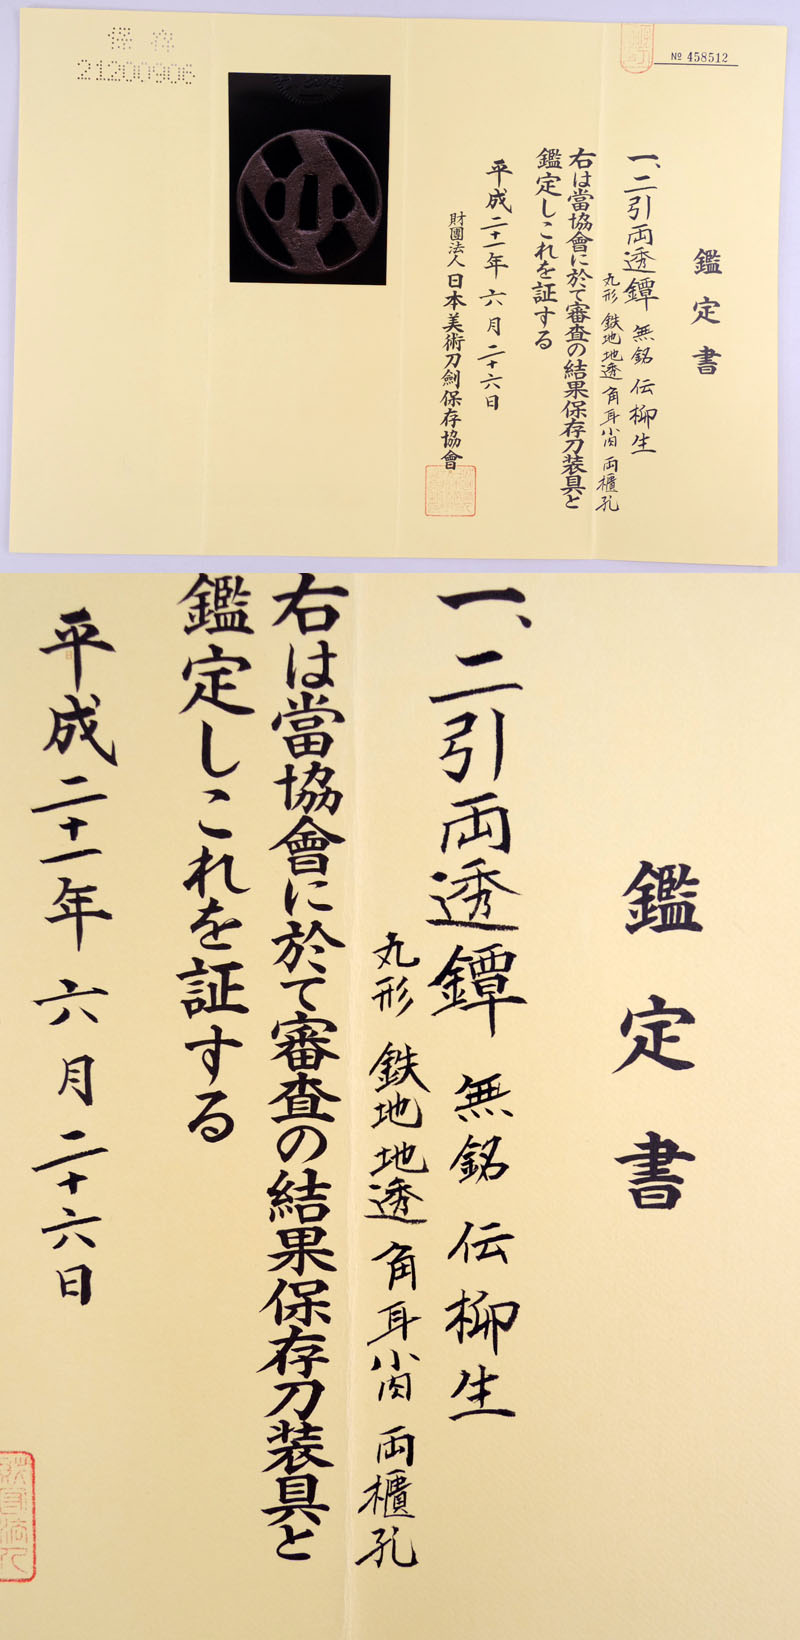 保存
21200906
№ 458512
鑑定書
一、二引両透鐔 無銘 伝柳生
丸形 鉄地地透 角耳小肉 両櫃孔
右は當協會に於て審査の結果保存刀装具と
鑑定しこれを証する
平成二十一年 六月二十六日
財團法人 日本美術刀劍保存協會
鑑定書
一、二引両透鐔 無銘 伝柳生
丸形 鉄地地透 角耳小肉 両櫃孔
右は當協會に於て審査の結果保存刀装具と
鑑定しこれを証する
平成二十一年 六月二十六日